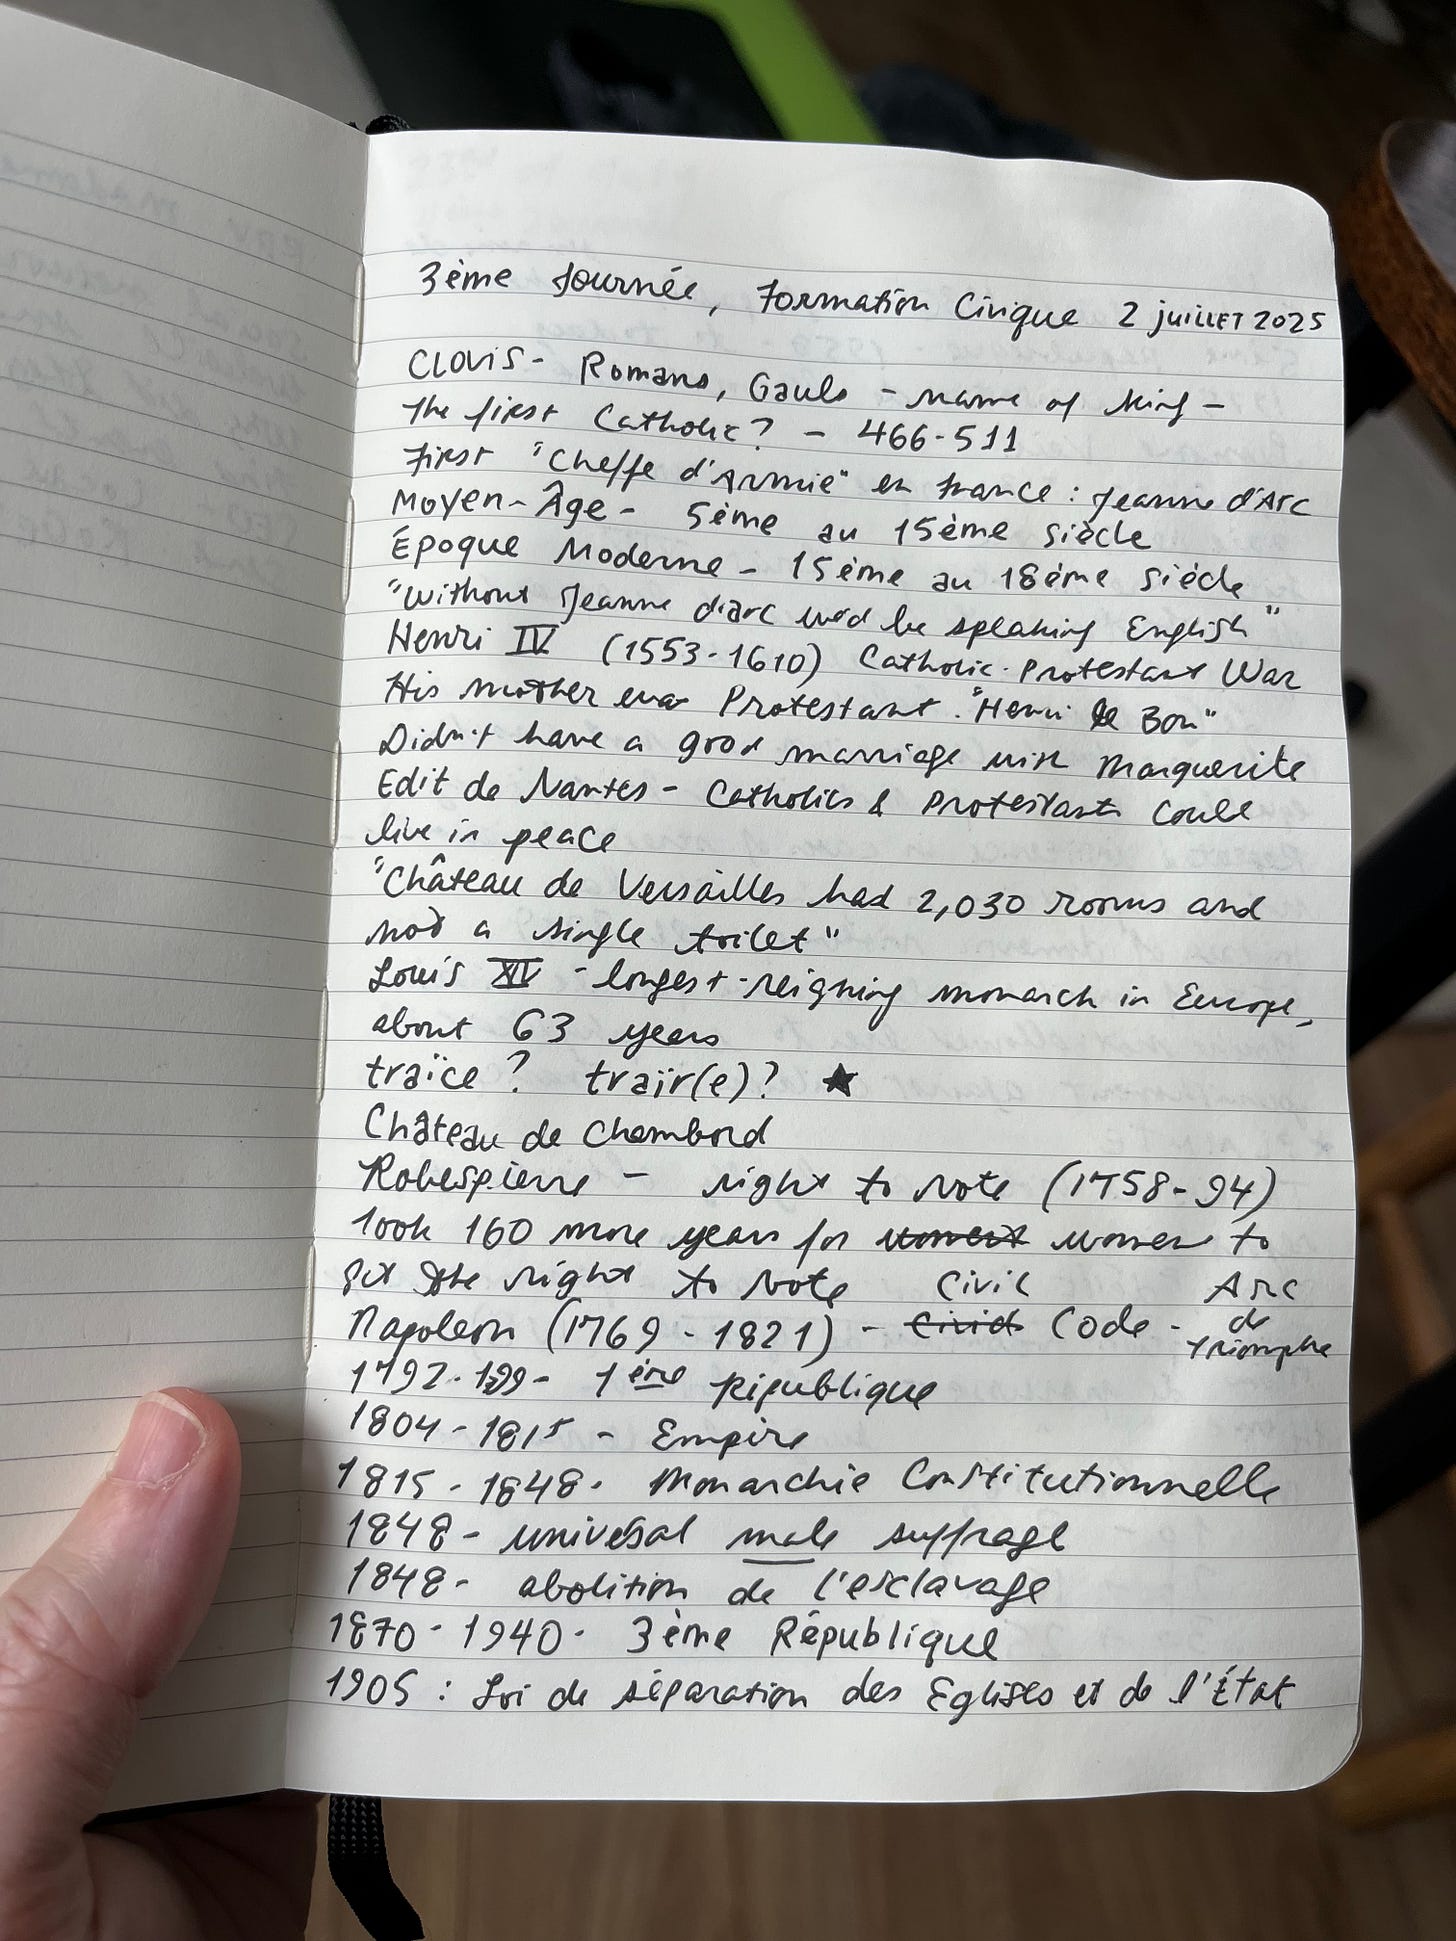 3ème Journée, Formation Civique 2 juillet 2025
Clovis - Romans, Gauls - name of king -
the first Catholic? - 466-511
First "Cheffe d'Armie" en France : Jeanne d'Arc
Moyen-Âge - 5ème au 15ème siècle
Époque Moderne - 15ème au 18ème siècle
"Without Jeanne d'arc we'd be speaking English"
Henri IV (1553-1610) Catholic-Protestant War
His mother was Protestant. "Henri le Bon"
Didn't have a good marriage with Marguerite
Edit de Nantes - Catholics & Protestants could
live in peace
"Château de Versailles had 2,030 rooms and
not a single toilet"
Louis XIV - longest-reigning monarch in Europe,
about 63 years
traïce? traïr(e)? ★
Château de Chambord
Robespierre - right to vote (1758-94)
took 160 more years for women to
get the right to vote Civil Arc
Napoleon (1769 - 1821) - Code - de
triomphe
1792-1799- 1ère République
1804-1815 - Empire
1815-1848- Monarchie Constitutionnelle
1848- univesal male suffrage
1848- abolition de l'esclavage
1870-1940- 3ème République
1905 : Loi de séparation des Eglises et de l'État